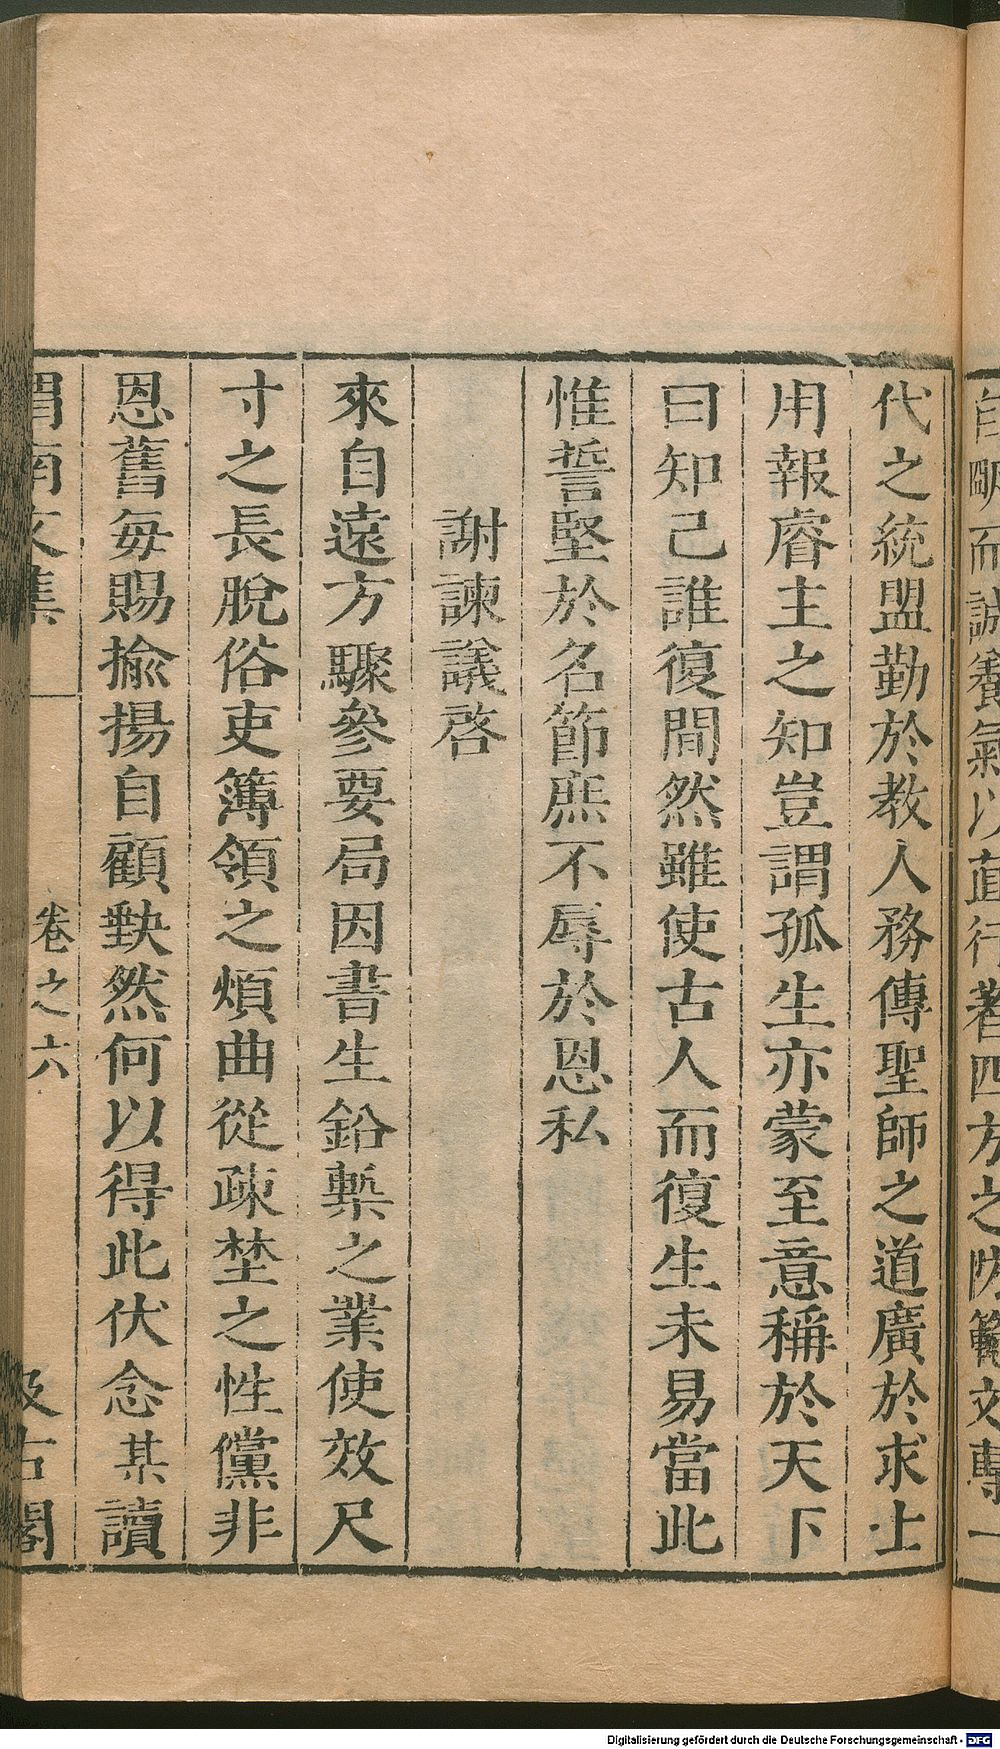 自 而誠養氣以直行著四方之防範文專一
代之統盟勤於教人務傳聖師之道廣於求士
用報睿主之知豈謂孤生亦蒙至意稱於天下
曰知己誰復間然雖使古人而復生未易當此
惟誓堅於名節庶不辱於恩私
謝諫議啓
來自遠方驟參要局因書生鉛槧之業使效尺
寸之長脫俗吏簿領之煩曲從疎埜之性儻非
恩舊每賜揄揚自顧缺然何以得此伏念某讀
渭南文集
卷之六
汲古閣
Digitalisierung gefördert durch die Deutsche Forschungsgemeinschaft - DFG